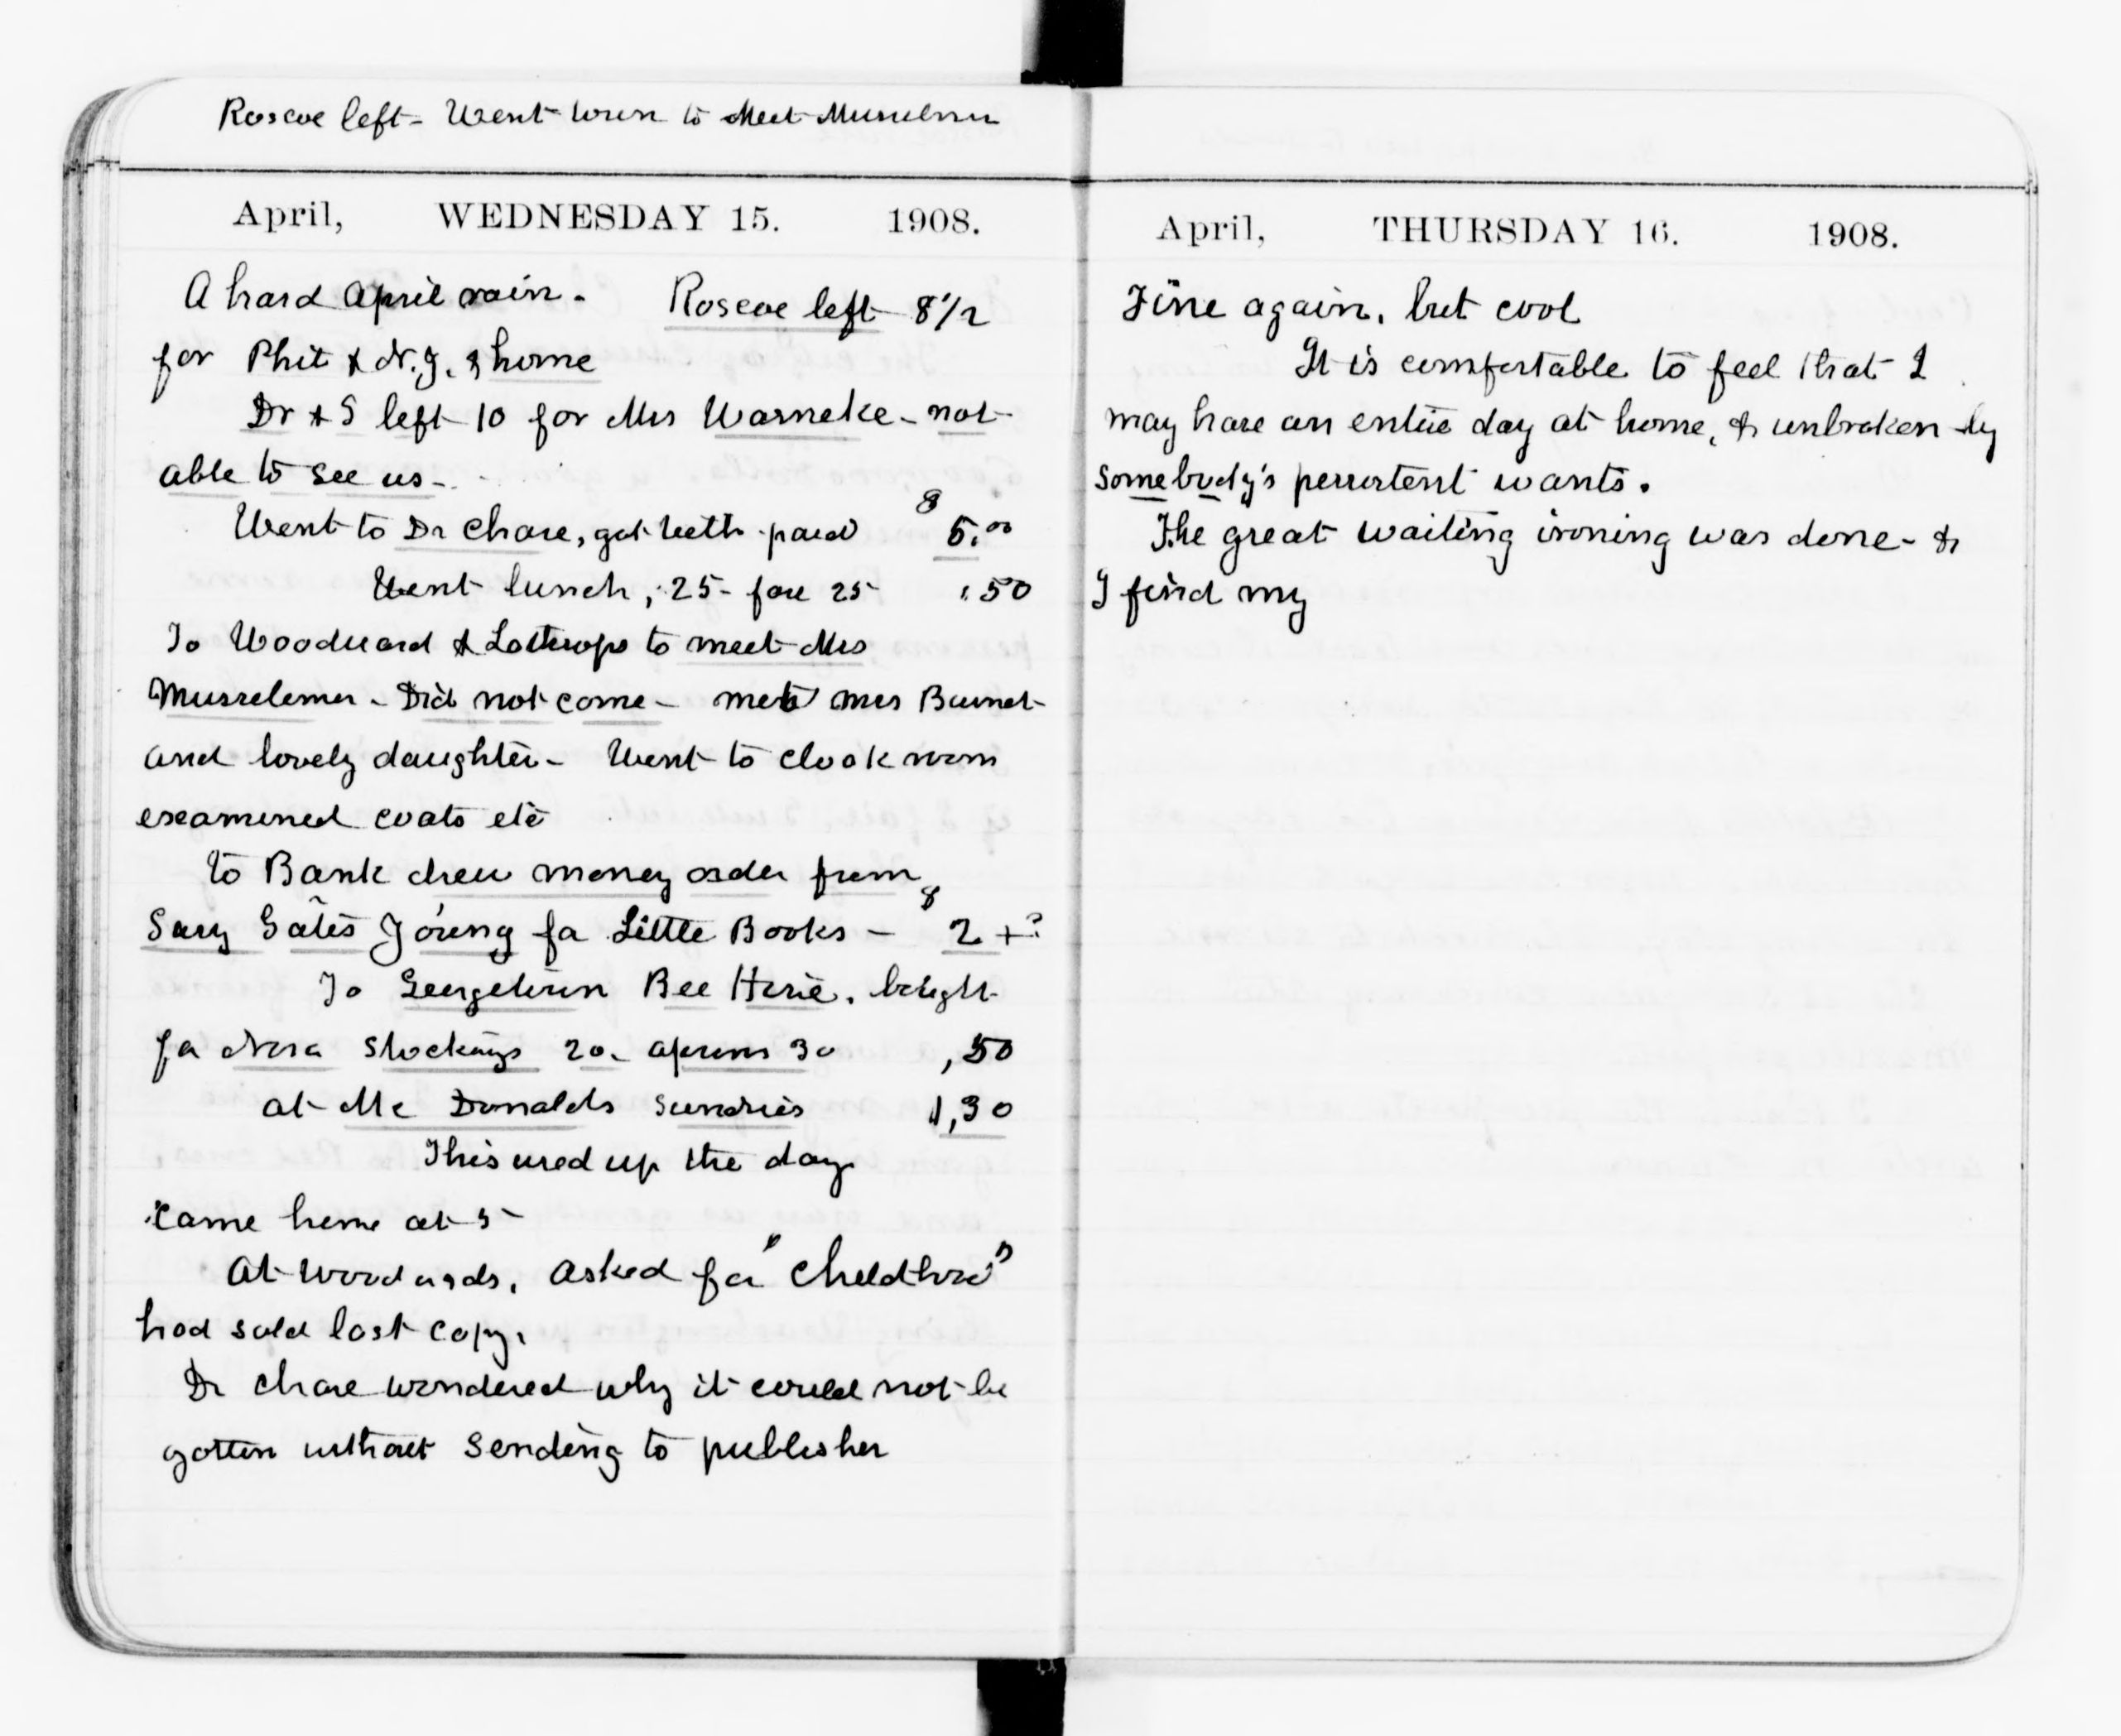 Roscoe left - Went town to Meet Musselmer
April, WEDNESDAY 15. 1908.
A hard April rain. Roscoe left 8 1/2
for Phil & N.Y. & home
Dr & S left 10 for Mrs Warneke - not
able to see us -
Went to Dr Chase, got teeth paid $ 5.00
Went lunch, 25 - fare 25 .50
To Woodward & Lothrops to meet Mrs
Musselemer - Did not come - met Mrs
and lovely daughter - Went to cloak room
examined coats etc
to Bank drew money order from
Gates Young for Little Books - $ 2 + ?
To Georgetown Bee Hive. bought
for Nora Stockings 20 - aprons 30 ,50
at Mc Donalds Sundries 1,30
This used up the day
Came home at 5
At Woodwards, asked for "Childhood"
had sold last copy.
Dr Chase wondered why it could not be
gotten without sending to publisher
April, THURSDAY 16. 1908.
Fine again, but cool
It is comfortable to feel that I
may have an entire day at home, & unbroken by
somebody's persistent wants.
The great waiting ironing was done - &
I find my